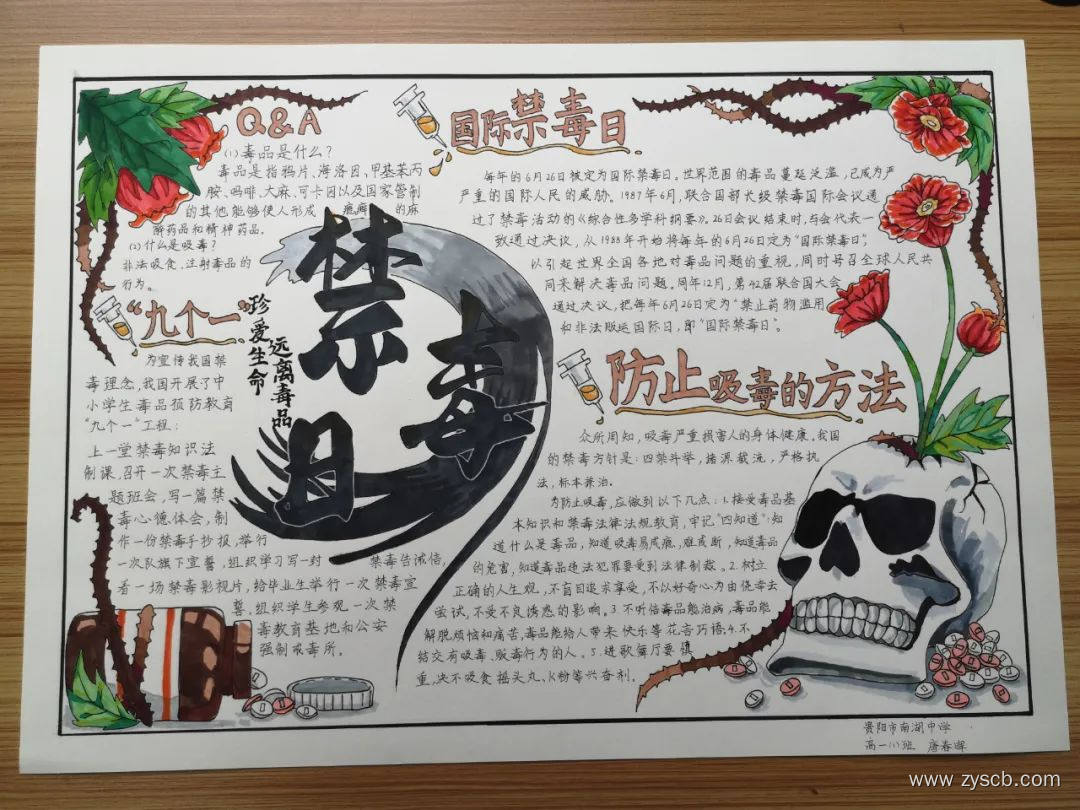 Q&A
(1)毒品是什么?
毒品是指鸦片、海洛因、甲基苯丙
胺、吗啡、大麻、可卡因以及国家管制
的其他能够使人形成 瘾癖 的麻
醉药品和精神药品。
(2)什么是吸毒?
非法吸食、注射毒品的
行为。
“九个一”
为宣传我国禁
毒理念,我国开展了中
小学生毒品预防教育
“九个一”工程:
上一堂禁毒知识法
制课、召开一次禁毒主
题班会,写一篇禁
毒心德体会,制
作一份禁毒手抄报,举行
一次队旗下宣誓,组织学习写一封 禁毒告诫信,
看一场禁毒影视片,给毕业生举行一次禁毒宣
誓,组织学生参观一次禁
毒教育基地和公安
强制戒毒所。
珍爱生命
远离毒品
禁毒日
国际禁毒日
每年的6月26日被定为国际禁毒日。世界范围的毒品蔓延泛滥,已成为严
严重的国际人民的威胁。1987年6月,联合国部长级禁毒国际会议通
过了禁毒活动的《综合性多学科纲要》。26日会议结束时,与会代表一
致通过决议,从1988年开始将每年的6月26日定为“国际禁毒日”,
以引起世界全国各地对毒品问题的重视,同时号召全球人民共
同来解决毒品问题,同年12月,第42届联合国大会
通过决议,把每年6月26日定为“禁止药物滥用
和非法贩运国际日,即“国际禁毒日”。
防止吸毒的方法
众所周知,吸毒严重损害人的身体健康。我国
的禁毒方针是:四禁并举,堵源截流,严格执
法,标本兼治。
为防止吸毒,应做到以下几点:1.接受毒品基
本知识和禁毒法律法规教育,牢记“四知道”:知
道什么是毒品,知道吸毒易成瘾,难戒断,知道毒品
的危害,知道毒品违法犯罪要受到法律制裁。2.树立
正确的人生观,不盲目追求享受,不以好奇心为由侥幸去
尝试,不受不良诱惑的影响。3.不听信毒品能治病,毒品能
解脱烦恼和痛苦,毒品能给人带来快乐等花言巧语。4.不
结交有吸毒、贩毒行为的人。5.进歌舞厅要 慎
重,决不吸食摇头丸、K粉等兴奋剂。
贵阳市南湖中学
高一(1)班 唐春晖
www.zyscb.com